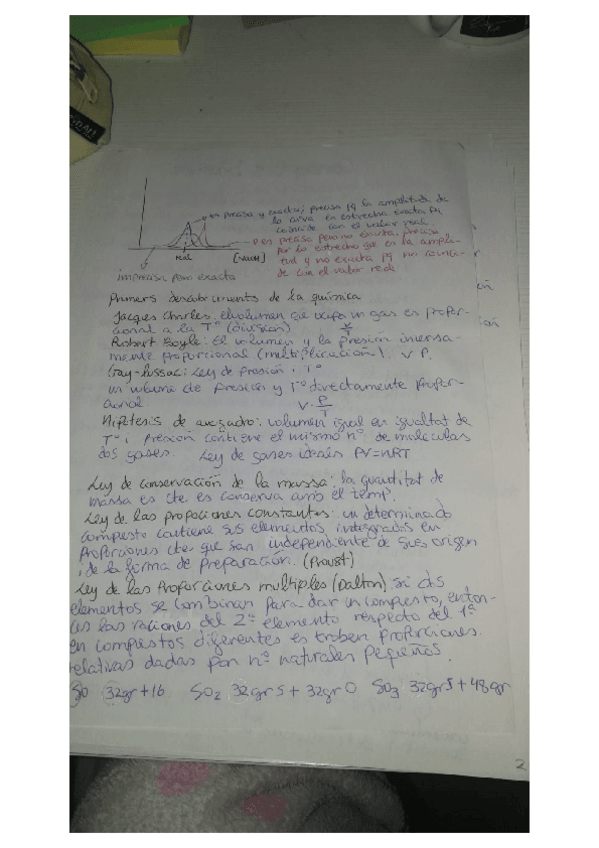 es precisa y exacta; precisa pq la amplitud de
la curva es estrecha exacta pq
coincide con el valor real
es precisa pero no exacta, precisa
por lo estrecho que es la ampli-
tud y no exacta pq no coinci-
de con el valor real
real
[valor]
imprecisa pero exacta
Primers descobriments de la química
Jacques Charles: el volumen que ocupa un gas es propor-
cional a la Tº (división) V/T
Robert Boyle: El volumen y la presión inversa-
mente proporcional (multiplicación). V P.
Gay-lussac: Ley de presión i Tº
un volume cte presión y Tº directamente propor-
cional. V · P/T
Hipótesis de avogadro: volumen igual en igualtat de
Tº i presión contiene el mismo nº de moléculas
dos gases. Ley de gases ideals PV=nRT
Ley de conservación de la massa: la quantitat de
massa es cte es conserva amb el temps.
Ley de las propociones constantes: un determinado
compuesto contiene sus elementos integrados en
proporciones ctes que son independiente de sus origen
i de la forma de preparación. (Proust)
Ley de las Proporciones multiples (Dalton) si dos
elementos se combinan para dar un compuesto, enton-
ces las raciones del 2º elemento respecto del 1º
en compuestos diferentes es troben proporciones
relativas dadas por nº naturales pequeños.
SO 32gr + 16 SO2 32gr S + 32gr O SO3 32gr S + 48gr
2